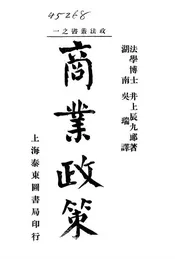 45268
政法叢書之一
法學博士 井上辰九郎著
湖南 吳瑞譯
商業政策
上海泰東圖書局印行